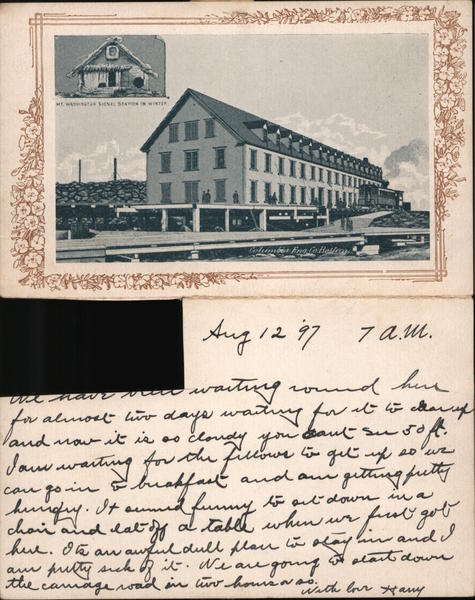 MT. WASHINGTON SIGNAL STATION IN WINTER.
Columbia Eng. Co. Boston.
Aug 12 '97 7 A.M.
We have been waiting round here
for almost two days waiting for it to clear up
and now it is so cloudy you cant see 50 ft.
I am waiting for the fellows to get up so we
can go in to breakfast and am getting pretty
hungry. It seemed funny to sit down in a
chair and eat off a table when we first got
here. Its an awful dull place to stay in and I
am pretty sick of it. We are going to start down
the carriage road in two hours or so.
With love Harry